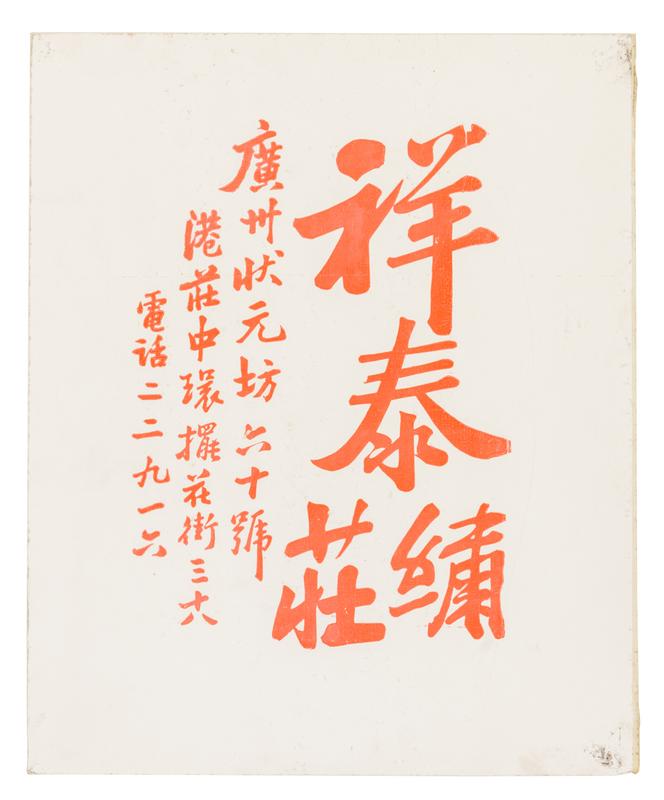 祥泰繡莊
廣州狀元坊六十號
港莊中環擺花街三十八
電話二二九一六